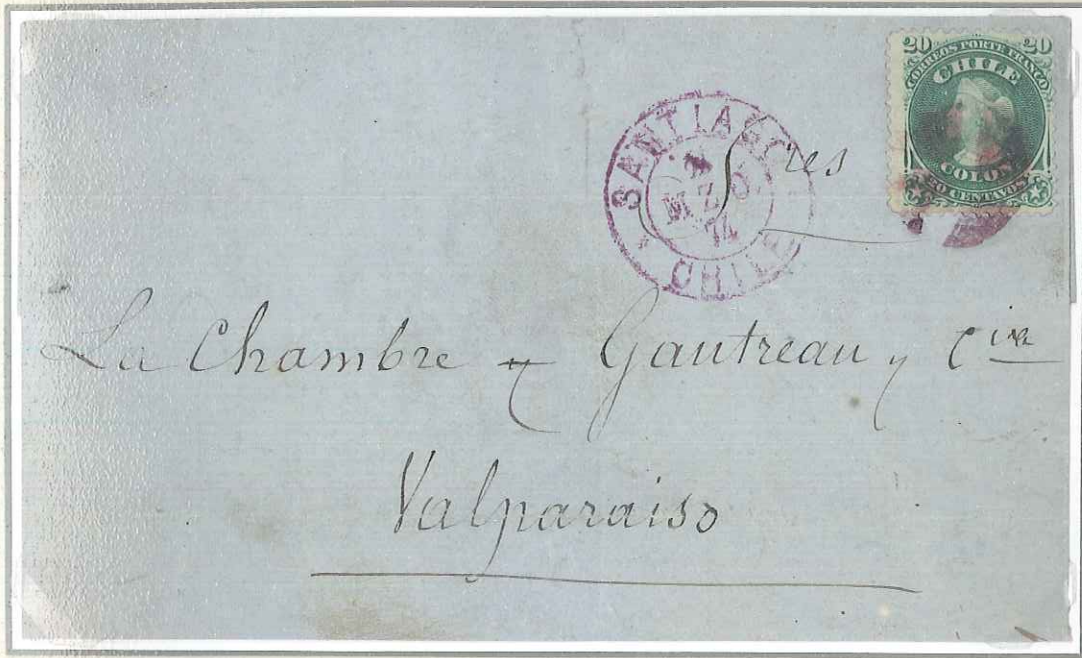 20 20
CORREOS PORTE FRANCO
CHILE
COLON
20 CENTAVOS
SANTIAGO
MZO
74
CHILE
Sres
La Chambre y Gautreau y Cia
Valparaiso